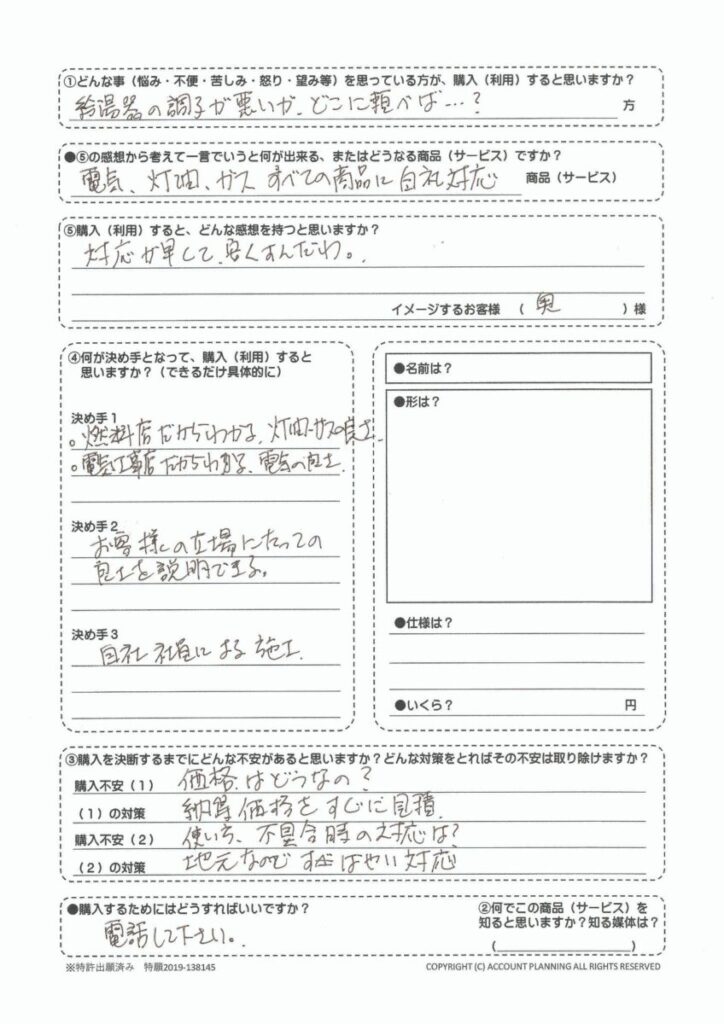 ①どんな事（悩み・不便・苦しみ・怒り・望み等）を思っている方が、購入（利用）すると思いますか？
給湯器の調子が悪いが、どこに頼べば…？ 方
●⑤の感想から考えて一言でいうと何が出来る、またはどうなる商品（サービス）ですか？
電気、灯油、ガス すべての商品に自社対応 商品（サービス）
⑤購入（利用）すると、どんな感想を持つと思いますか？
対応が早くて、安くすんだわ。
イメージするお客様 （ 奥 ）様
④何が決め手となって、購入（利用）すると
思いますか？（できるだけ具体的に）
決め手1
○燃料店だからわかる、灯油・ガスの良さ、
○電気工事店だからわかる、電気の良さ、
決め手2
お客様の立場にたっての
良さを説明できる。
決め手3
自社社員による施工
●名前は？
●形は？
●仕様は？
●いくら？ 円
③購入を決断するまでにどんな不安があると思いますか？どんな対策をとればその不安は取り除けますか？
購入不安（1） 価格はどうなの？
（1）の対策 納得価格をすぐに見積
購入不安（2） 使い方、不具合時の対応は？
（2）の対策 地元なので すばやい対応
●購入するためにはどうすればいいですか？
電話して下さい。
②何でこの商品（サービス）を
知ると思いますか？知る媒体は？
（ ）
※特許出願済み 特願2019-138145
COPYRIGHT (C) ACCOUNT PLANNING ALL RIGHTS RESERVED